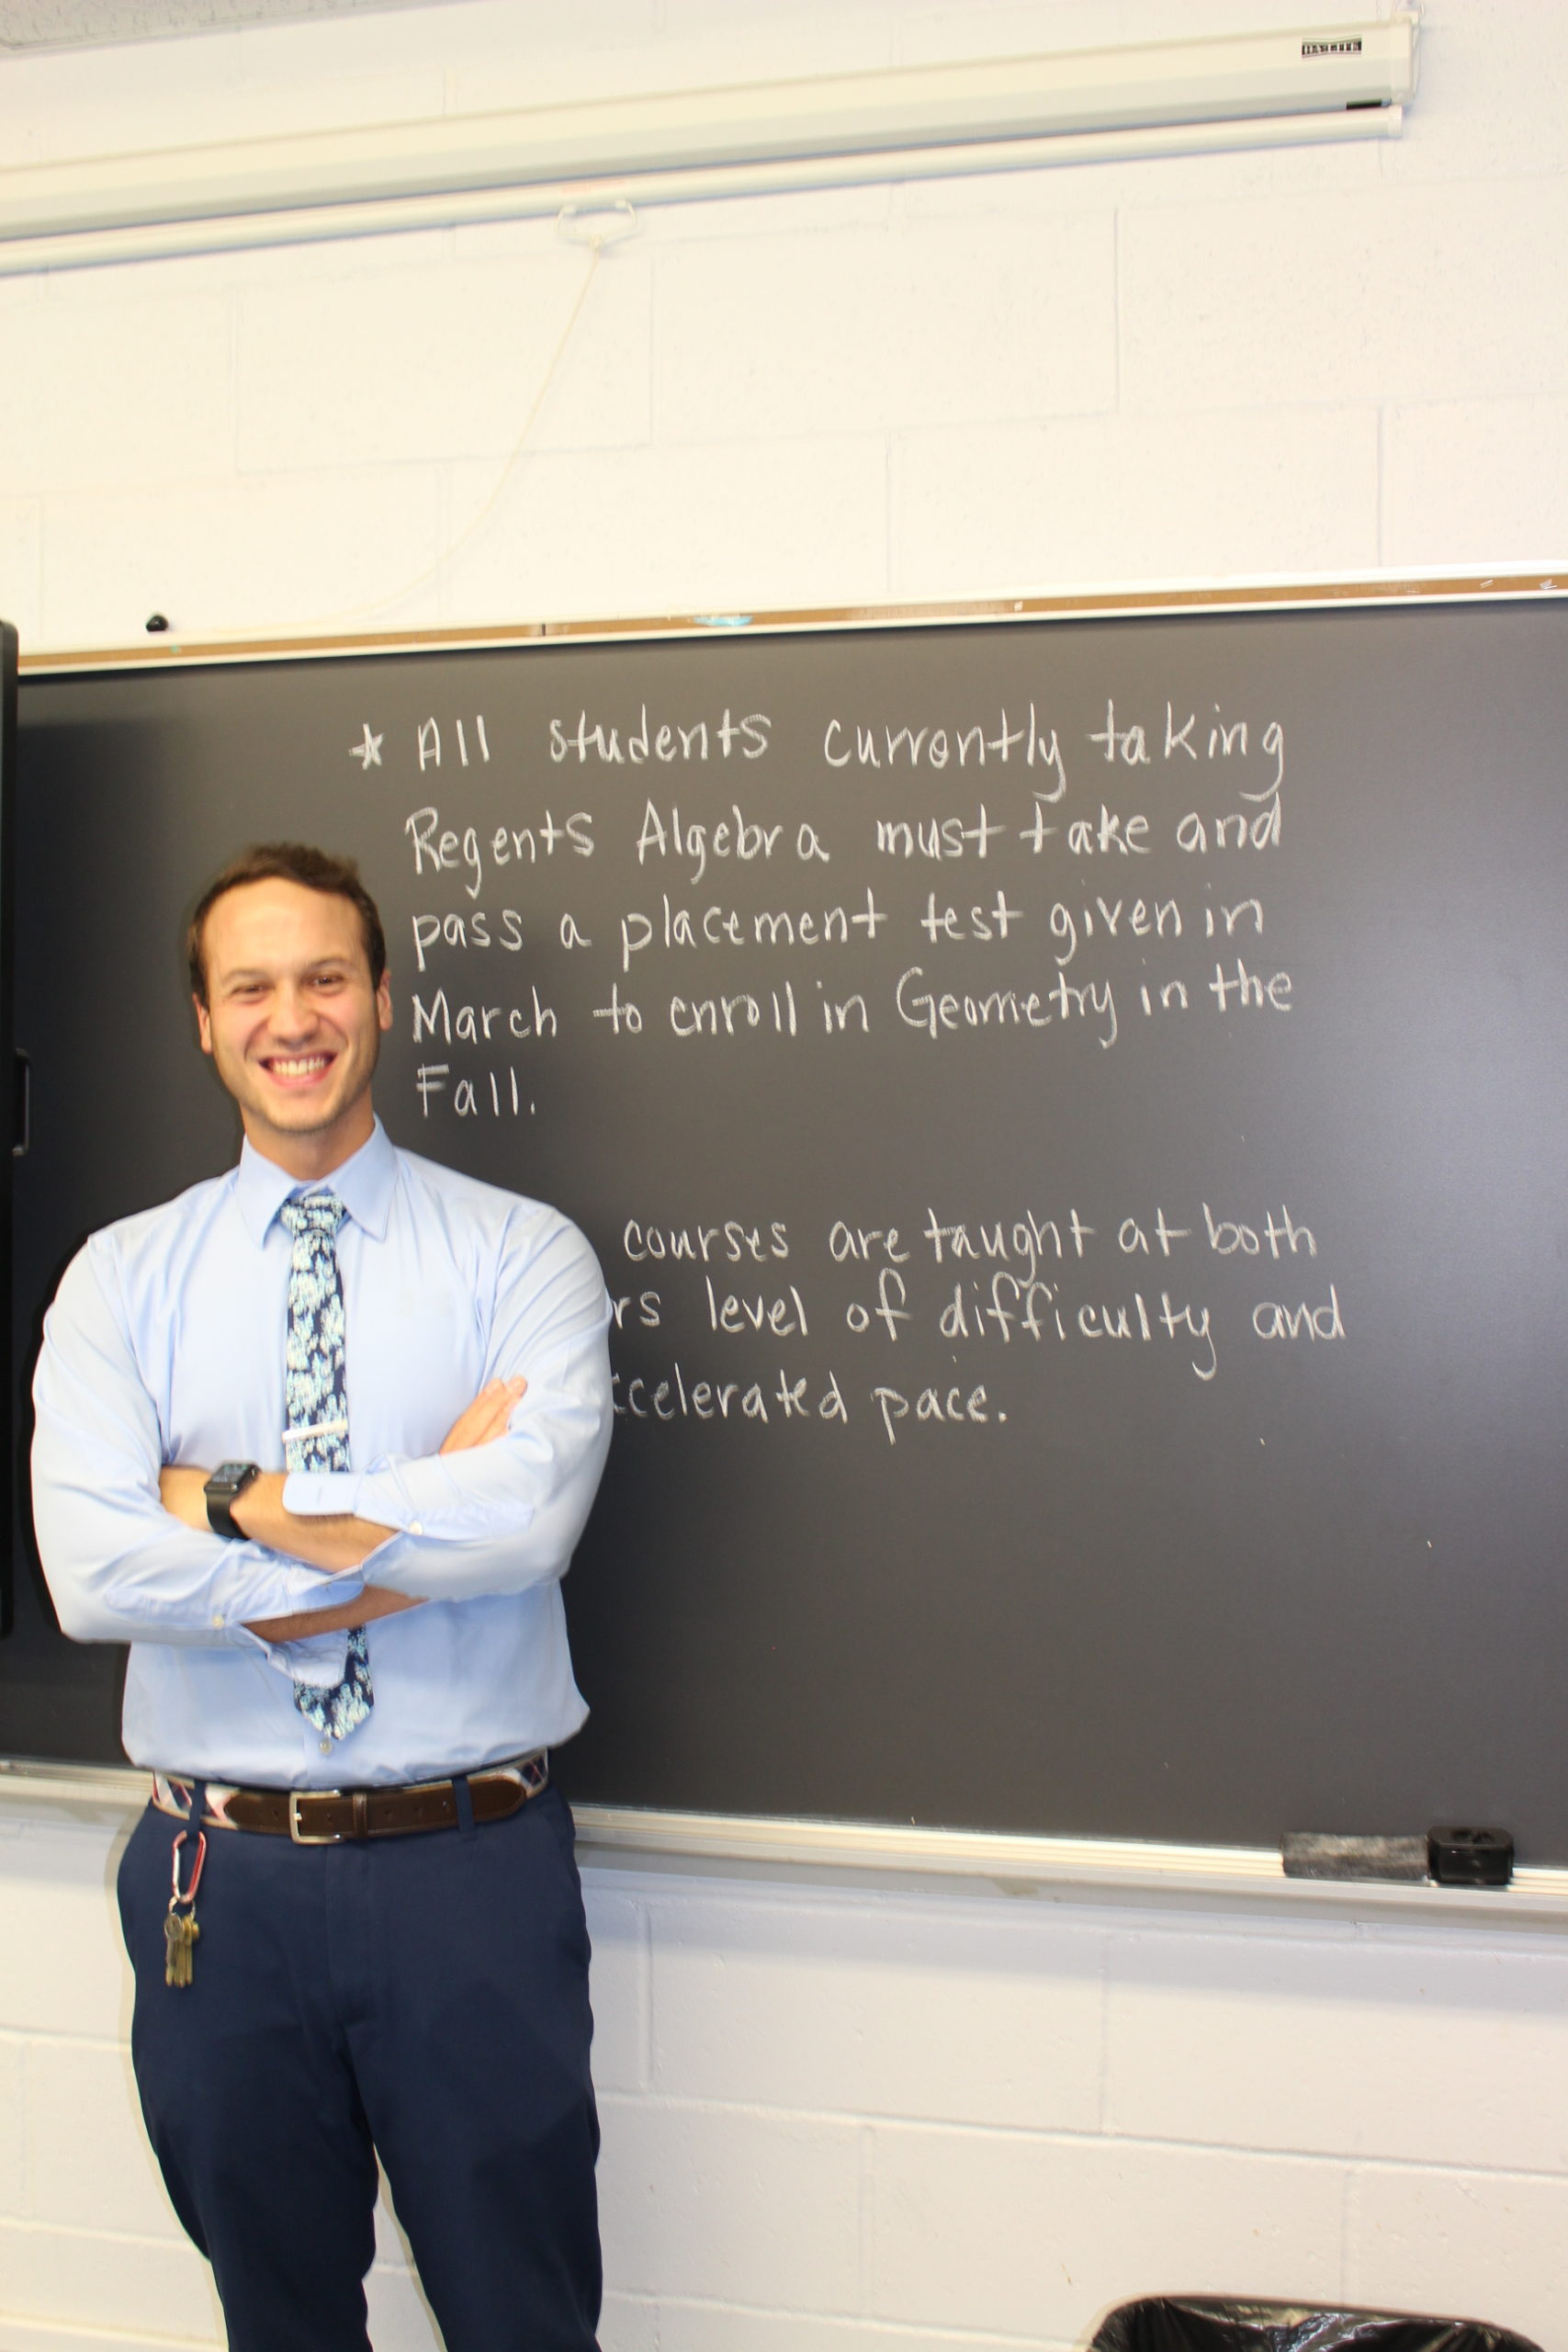 * All students currently taking
Regents Algebra must take and
pass a placement test given in
March to enroll in Geometry in the
Fall.
courses are taught at both
rs level of difficulty and
ccelerated pace.